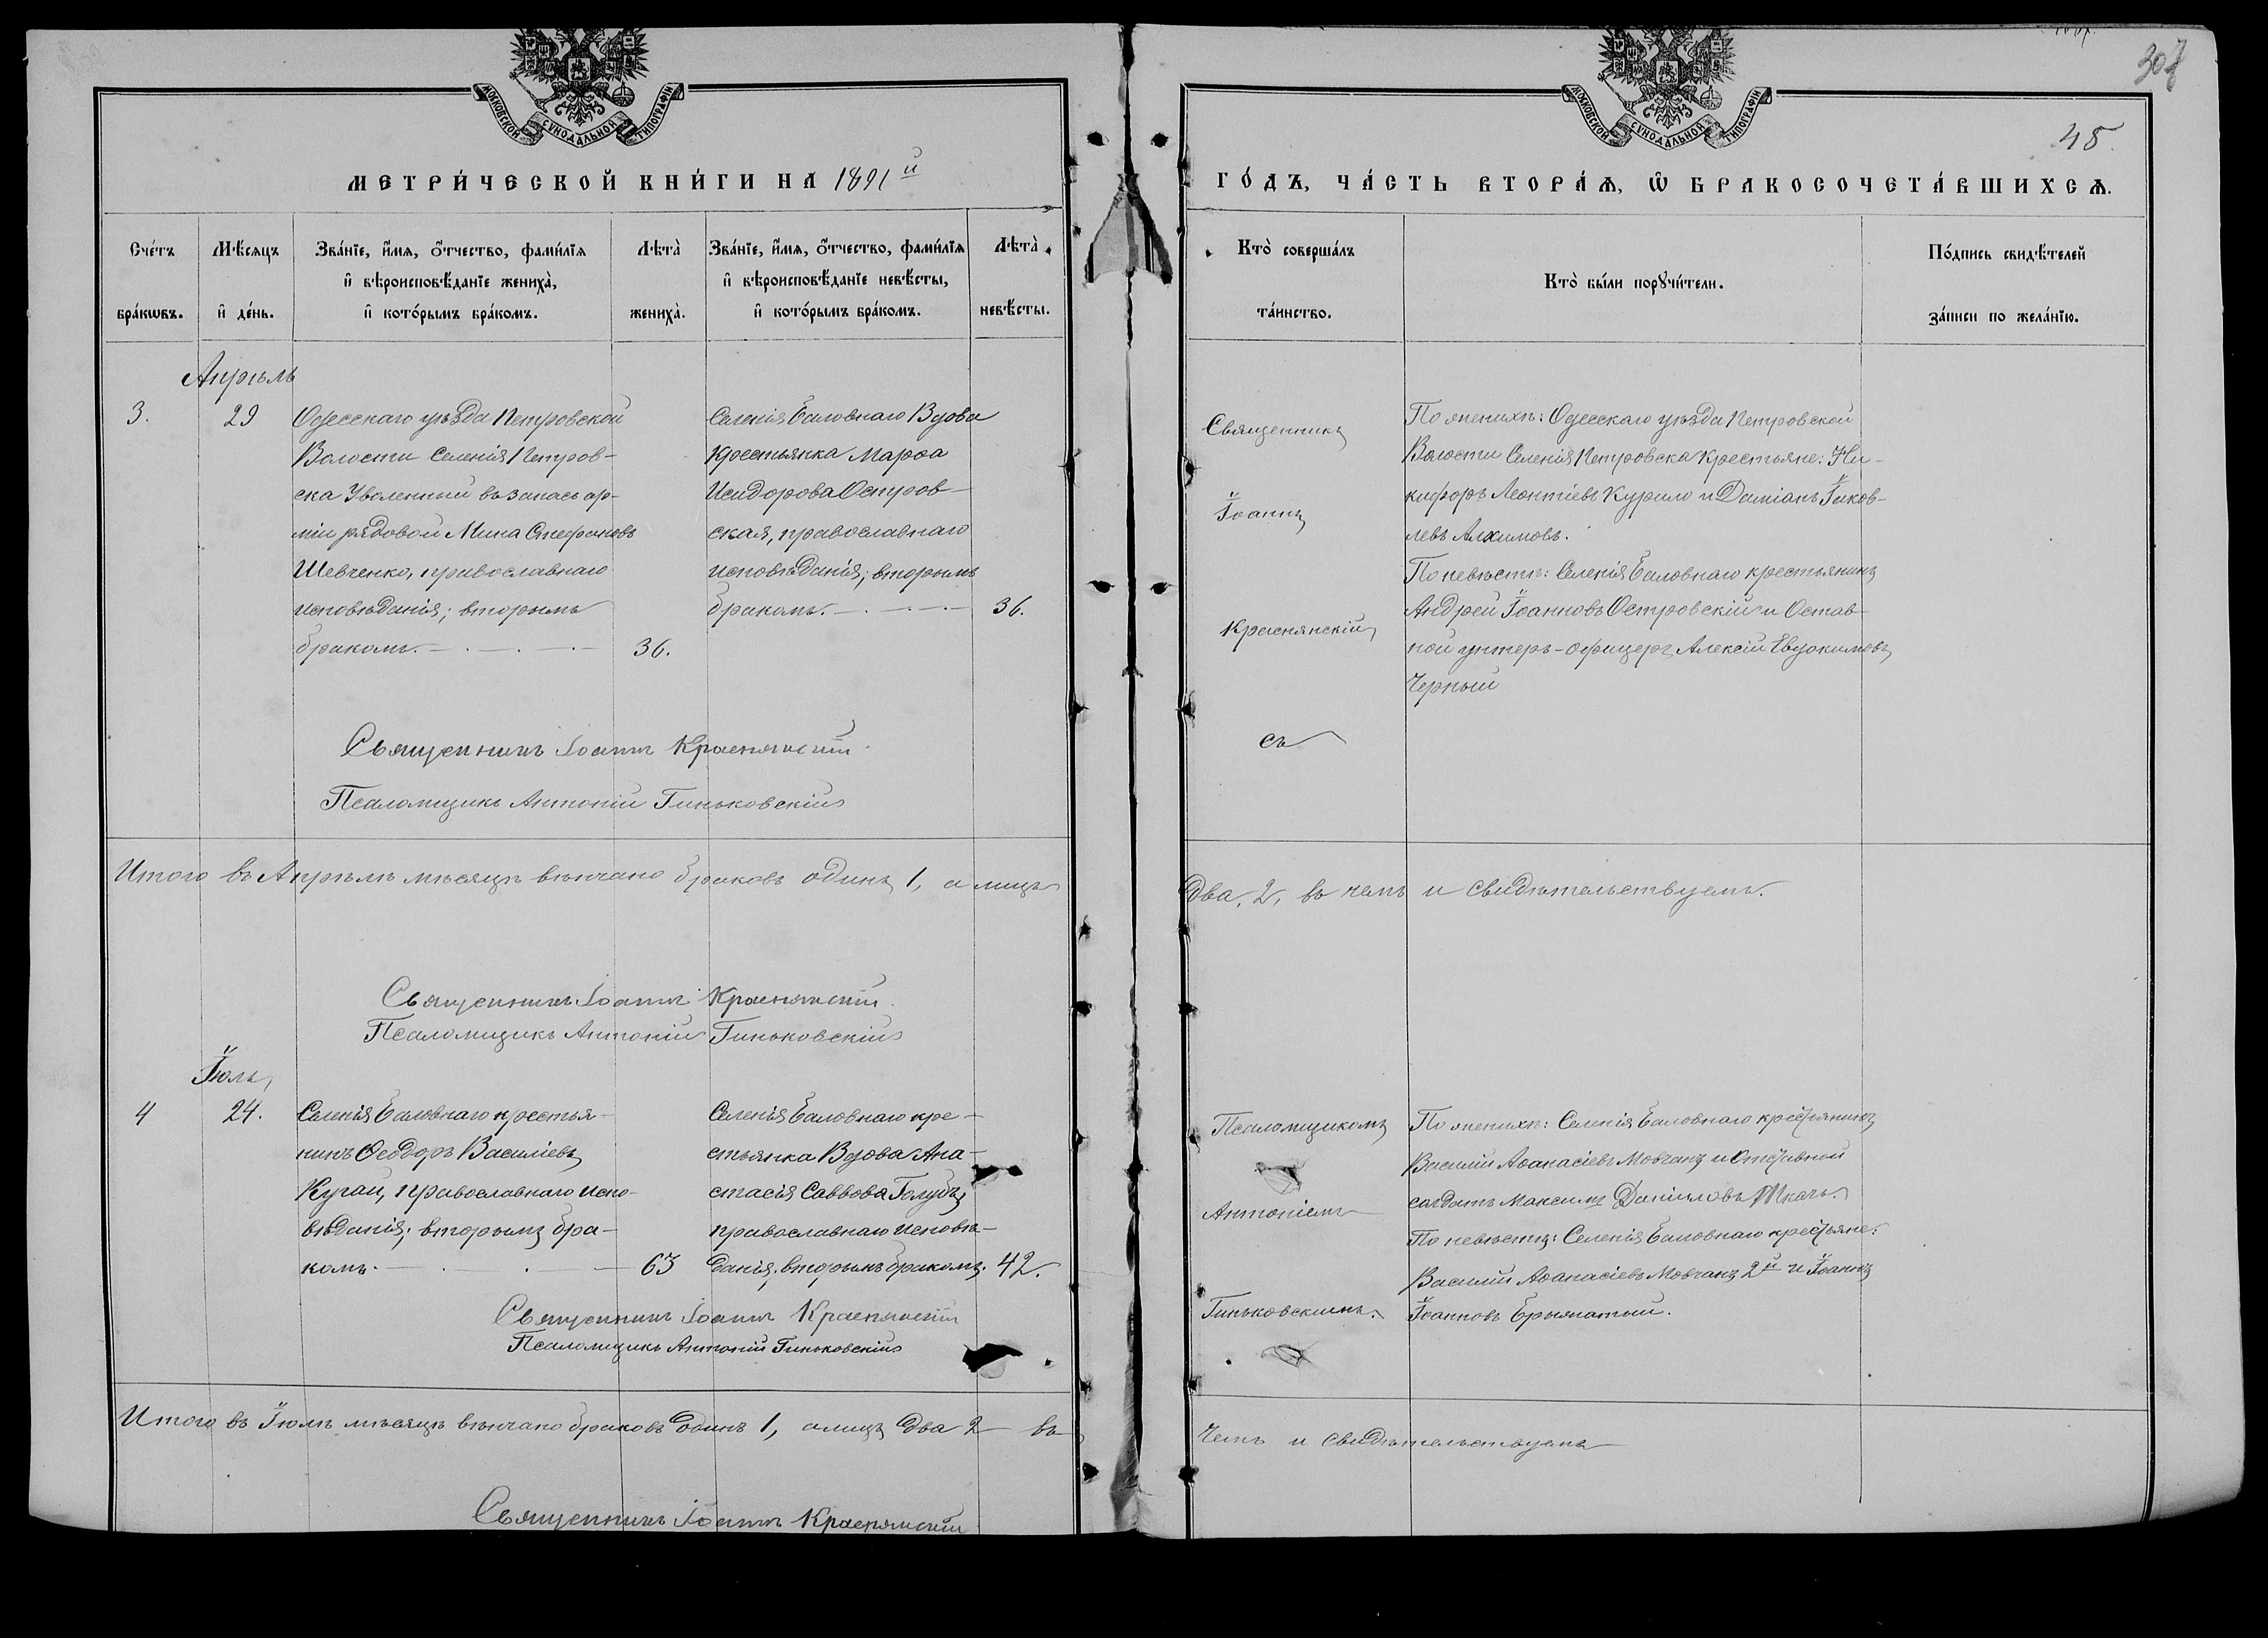 МОСКОВСКОЙ СѴНОДАЛЬНОЙ ТИПОГРАФІИ
МЕТРИ́ЧЕСКОЙ КНИ́ГИ НА 1891й
Сче́тъ бра́кѡвъ.
Мѣ́сяцъ и҆ де́нь.
Зва́нїе, и҆́мѧ, ѻ҆́тчество, фами́лїѧ
и҆ вѣроисповѣ́данїе жениха̀,
и҆ кото́рымъ бра́комъ.
Лѣта̀ жениха̀.
Зва́нїе, и҆́мѧ, ѻ҆́тчество, фами́лїѧ
и҆ вѣроисповѣ́данїе невѣ́сты,
и҆ кото́рымъ бра́комъ.
Лѣта̀ невѣ́сты.
Апрѣль
3.
29
Одесскаго уѣзда Петровской
Волости Селенія Петров-
ска Уволенный въ запасъ ар-
міи рядовой Мина Стефановъ
Шевченко, православнаго
исповѣданія; вторымъ
бракомъ.
36.
Селенія Баловнаго Вдова
крестьянка Марѳа
Исидорова Остров-
ская, православнаго
исповѣданія; вторымъ
бракомъ.
36.
Священникъ Іоаннъ Краснянскій
Псаломщикъ Антоній Гиньковскій
Итого въ Апрѣлѣ мѣсяцѣ вѣнчано браковъ одинъ 1, а лицъ
Священникъ Іоаннъ Краснянскій
Псаломщикъ Антоній Гиньковскій
Іюль
4
24.
Селенія Баловнаго крестья-
нинъ Ѳеодоръ Василіевъ
Кугай, православнаго испо-
вѣданія; вторымъ бра-
комъ.
63
Селенія Баловнаго кре-
стьянка Вдова Ана-
стасія Саввова Голубъ,
православнаго исповѣ-
данія; вторымъ бракомъ.
42.
Священникъ Іоаннъ Краснянскій
Псаломщикъ Антоній Гиньковскій
Итого въ Іюлѣ мѣсяцѣ вѣнчано браковъ одинъ 1, а лицъ два 2 въ
Священникъ Іоаннъ Краснянскій
МОСКОВСКОЙ СѴНОДАЛЬНОЙ ТИПОГРАФІИ
45.
ГО́ДЪ, ЧА́СТЬ ВТОРА́Ѧ, Ѽ БРАКОСОЧЕТА́ВШИХСѦ.
Кто̀ соверша́лъ та́инство.
Кто̀ бы́ли порꙋчи́тели.
По́дпись свидѣ́телей
за́писи по жела́нїю.
Священникъ
Іоаннъ
Краснянскій
съ
По женихѣ: Одесскаго уѣзда Петровской
Волости Селенія Петровска крестьяне: Ни-
кифоръ Леонтіевъ Курило и Даміанъ Іаков-
левъ Алхимовъ.
По невѣстѣ: Селенія Баловнаго крестьянинъ
Андрей Іоанновъ Островскій и Отстав-
ной унтеръ-офицеръ Алексій Евдокимовъ
Черный
Два, 2, въ чемъ и свидѣтельствуемъ.
Псаломщикомъ
Антоніемъ
Гиньковскимъ.
По женихѣ: Селенія Баловнаго крестьянинъ
Василій Аѳанасіевъ Мовчанъ и Отставной
солдатъ Максимъ Даніиловъ Ткачъ.
По невѣстѣ: Селенія Баловнаго крестьяне:
Василій Аѳанасіевъ Мовчанъ 2й и Іоаннъ
Іоанновъ Брыжатый.
Чемъ и свидѣтельствуемъ